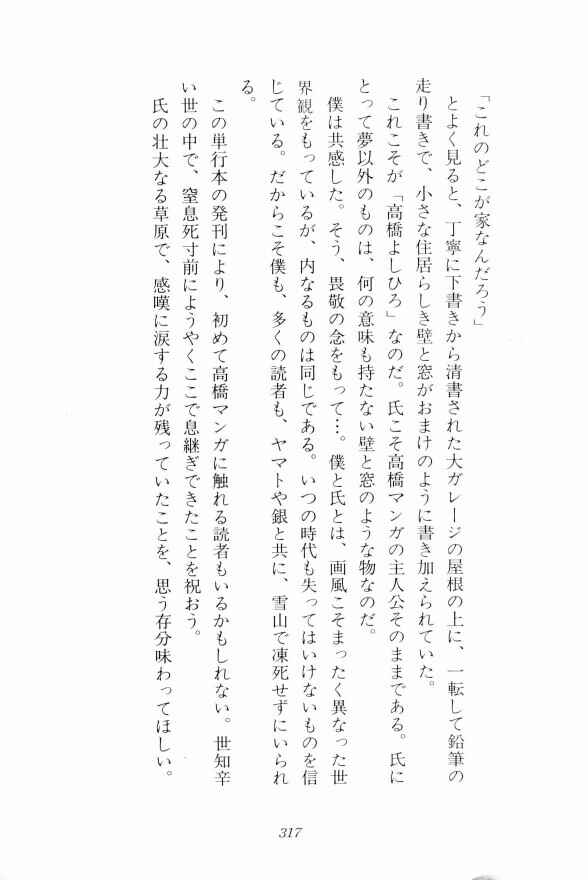 「これのどこが家なんだろう」
とよく見ると、丁寧に下書きから清書された大ガレージの屋根の上に、一転して鉛筆の
走り書きで、小さな住居らしき壁と窓がおまけのように書き加えられていた。
これこそが「高橋よしひろ」なのだ。氏こそ高橋マンガの主人公そのままである。氏に
とって夢以外のものは、何の意味も持たない壁と窓のような物なのだ。
僕は共感した。そう、畏敬の念をもって…。僕と氏とは、画風こそまったく異なった世
界観をもっているが、内なるものは同じである。いつの時代も失ってはいけないものを信
じている。だからこそ僕も、多くの読者も、ヤマトや銀と共に、雪山で凍死せずにいられ
る。
この単行本の発刊により、初めて高橋マンガに触れる読者もいるかもしれない。世知辛
い世の中で、窒息死寸前にようやくここで息継ぎできたことを祝おう。
氏の壮大なる草原で、感嘆に涙する力が残っていたことを、思う存分味わってほしい。
317